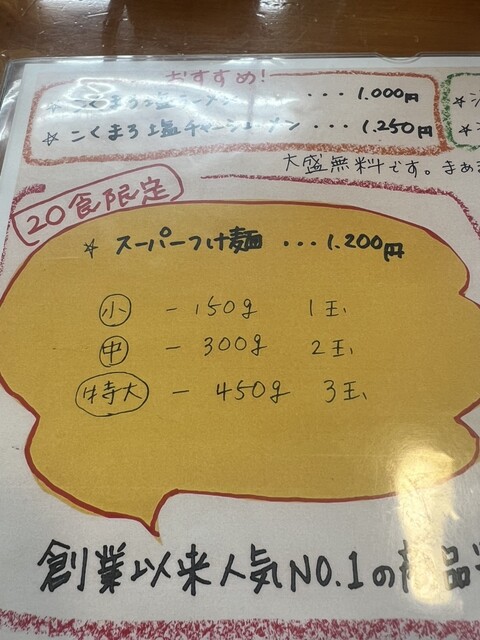 おすすめ!
☆ こくまろ塩ラーメン ・・・ 1.000円
☆ こくまろ塩チャーシューメン ・・・ 1.250円
大盛無料です。
20食限定
☆ スーパーつけ麺 ・・・ 1.200円
小 ー 150g 1玉
中 ー 300g 2玉
特大 ー 450g 3玉
創業以来人気NO.1の商品